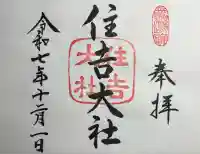 奉拝
住吉大社
住吉大社
令和七年十二月一日